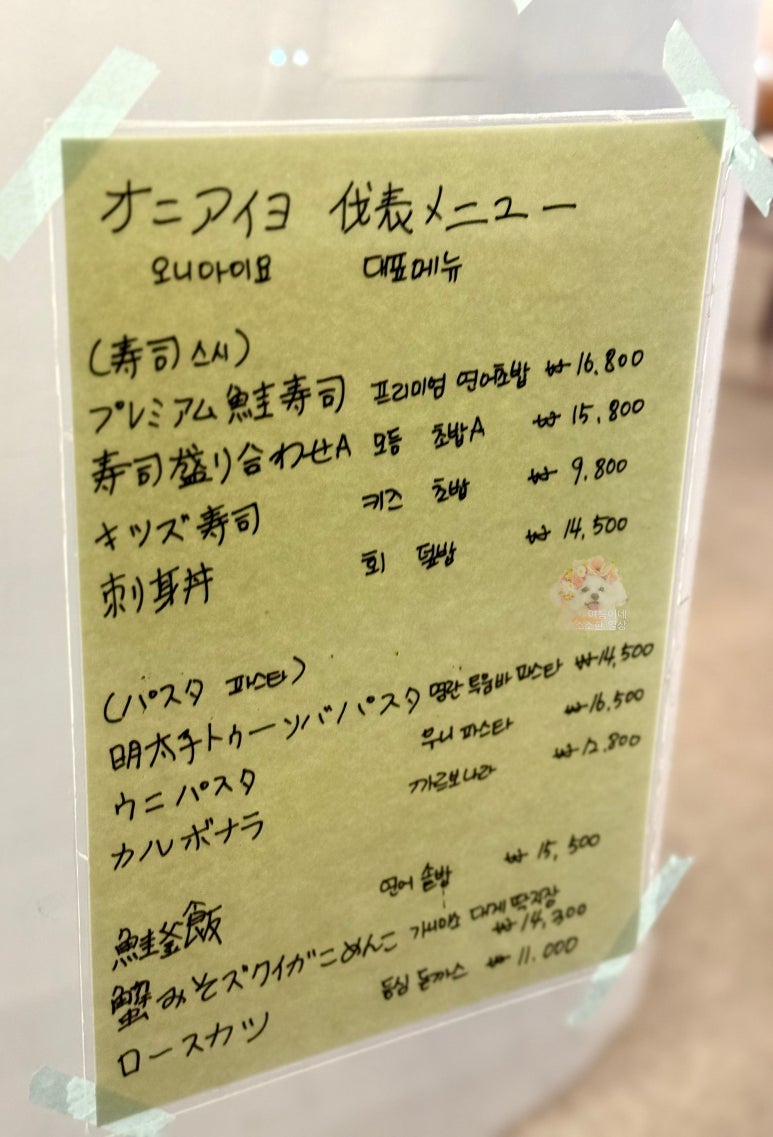 オニアイヨ 伐表メニュー
오니아이요 대표메뉴
(寿司 스시)
プレミアム鮭寿司 프리미엄 연어초밥 ₩16,800
寿司盛り合わせA 모듬 초밥A ₩15,800
キッズ寿司 키즈 초밥 ₩9,800
刺身丼 회 덮밥 ₩14,500
여름이네
소소한 일상
(パスタ 파스타)
明太子トゥーンバパスタ 명란 투움바 파스타 ₩14,500
ウニパスタ 우니 파스타 ₩16,500
カルボナラ 까르보나라 ₩12,800
鮭釜飯 연어 솥밥 ₩15,500
蟹みそズワイガニめんこ 가니미소 대게 딱지장 ₩14,300
ロースカツ 등심 돈까스 ₩11,000